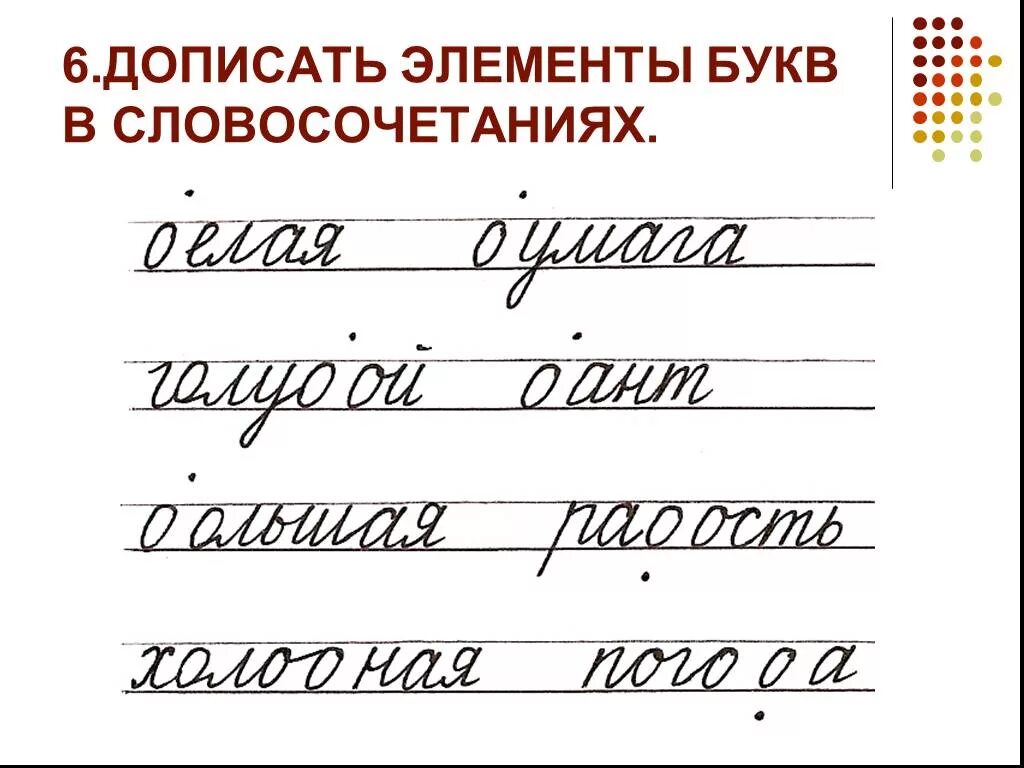 6.ДОПИСАТЬ ЭЛЕМЕНТЫ БУКВ
В СЛОВОСОЧЕТАНИЯХ.
оелая оумага
голуоой оант
оольшая раоость
холооная погооа